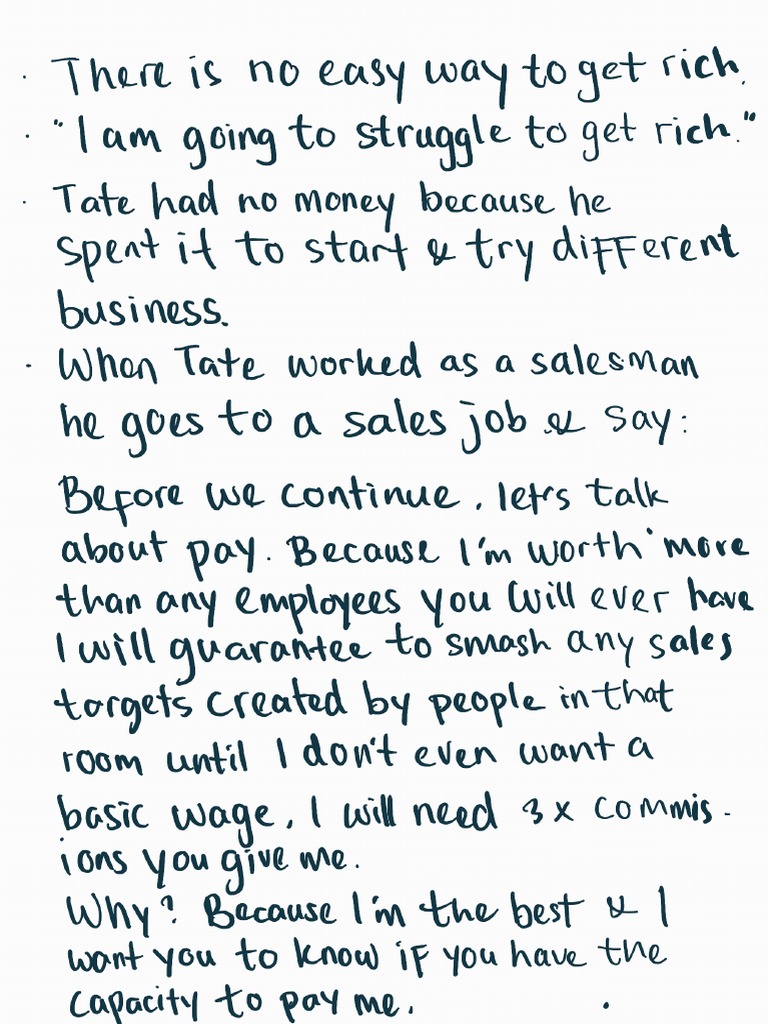 · There is no easy way to get rich.
· "I am going to struggle to get rich."
· Tate had no money because he
spent it to start & try different
business.
· When Tate worked as a salesman
he goes to a sales job & say:
Before we continue, let's talk
about pay. Because I'm worth more
than any employees you will ever have
I will guarantee to smash any sales
targets created by people in that
room until I don't even want a
basic wage, I will need 3x commis-
ions you give me.
Why? Because I'm the best & I
want you to know if you have the
capacity to pay me.